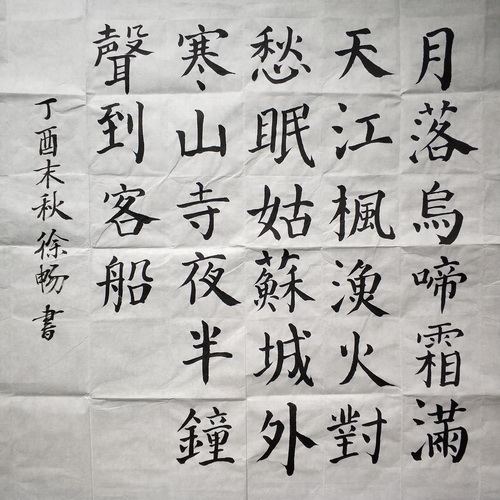 月落烏啼霜滿
天江楓漁火對
愁眠姑蘇城外
寒山寺夜半鐘
聲到客船
丁酉末秋徐畅書